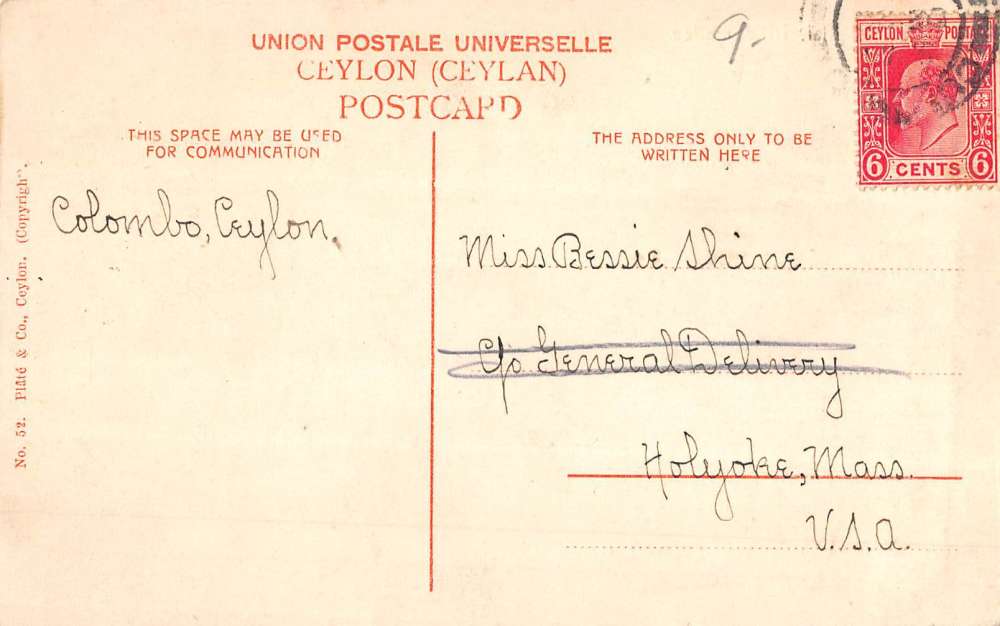 UNION POSTALE UNIVERSELLE
CEYLON (CEYLAN)
POSTCARD
9.
CEYLON POSTAGE
6 CENTS 6
THIS SPACE MAY BE USED
FOR COMMUNICATION
THE ADDRESS ONLY TO BE
WRITTEN HERE
Colombo, Ceylon.
Miss Bessie Shine
C/o General Delivery
Holyoke, Mass.
U.S.A.
No. 52. Plâté & Co., Ceylon. (Copyright).